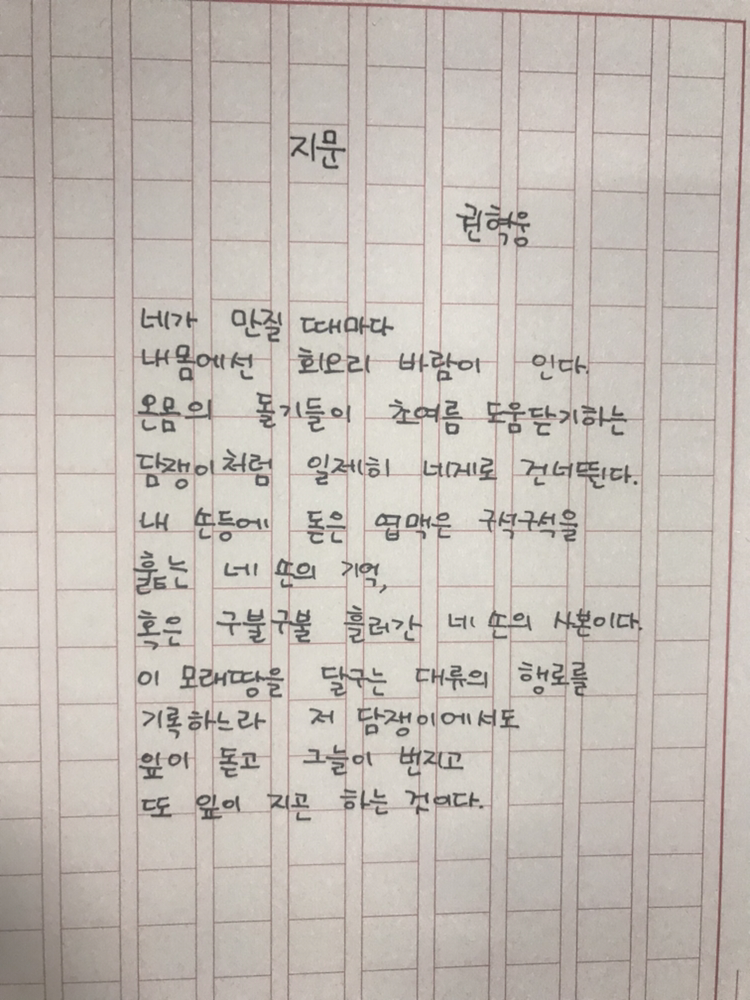 지문
권혁웅
네가 만질 때마다
내몸에선 회오리 바람이 인다.
온몸의 돌기들이 초여름 도움닫기하는
담쟁이처럼 일제히 네게로 건너뛴다.
내 손등에 돋은 엽맥은 구석구석을
훑는 네 손의 기억,
혹은 구불구불 흘러간 네 손의 사본이다.
이 모래땅을 달구는 대류의 행로를
기록하느라 저 담쟁이에서도
잎이 돋고 그늘이 번지고
또 잎이 지곤 하는 것이다.